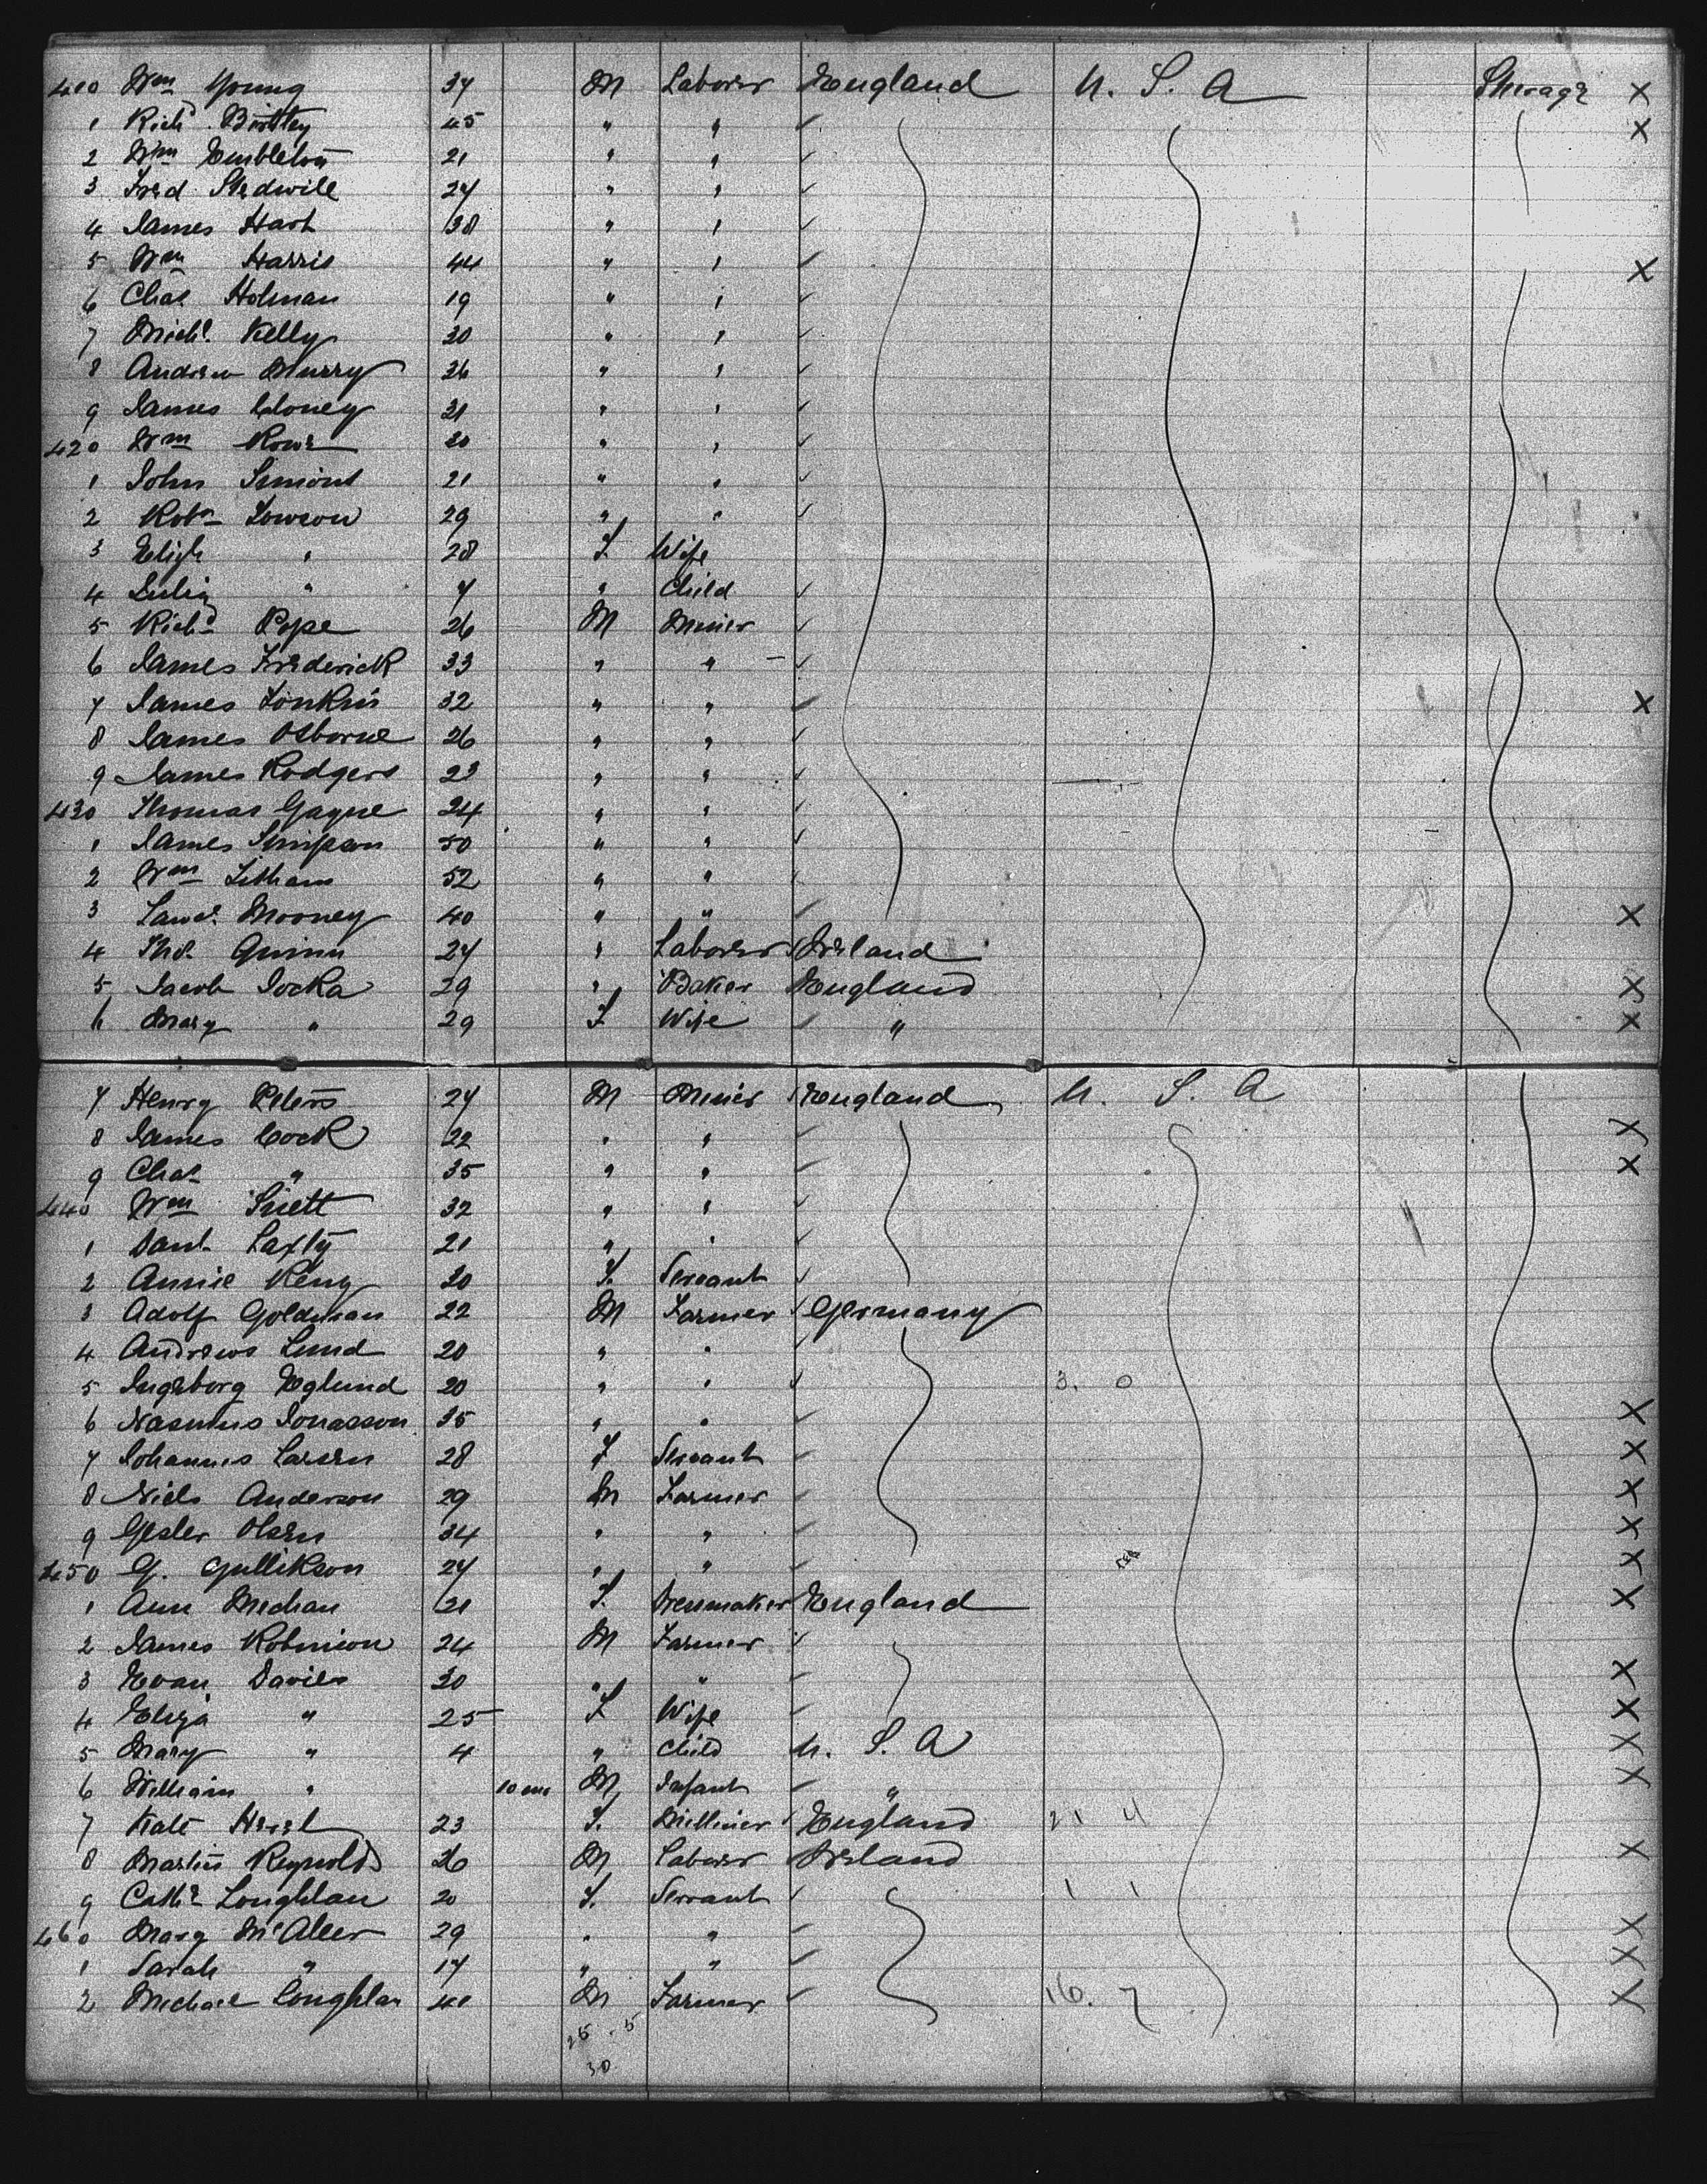 410 Wm Young 37 M Laborer England U. S. A Steerage X
1 Richd Bottley 45 " " ✓ X
2 Wm Embleton 21 " " ✓
3 Fred Stedwile 27 " " ✓
4 James Hart 38 " " ✓
5 Wm Harris 44 " " ✓ X
6 Chas Holman 19 " " ✓
7 Michl Kelly 30 " " ✓
8 Andrew Murry 36 " " ✓
9 James Cloney 31 " " ✓
420 Wm Rowe 20 " " ✓
1 John Simons 21 " " ✓
2 Robt Lowson 29 " " ✓
3 " 28 F Wife
4 Julia " 7 " Child ✓
5 Richd Pope 26 M Miner ✓
6 James Frederick 33 " " ✓
7 James Tonkin 32 " " ✓ X
8 James Osborne 26 " " ✓
9 James Rodgers 23 " " ✓
430 Thomas Gagne 24 " " ✓
1 James Simpson 50 " " ✓
2 Wm Litham 52 " " ✓
3 Lawce Mooney 40 " " ✓ X
4 Thos Quinn 27 " Laborer Ireland
5 Jacob Jocka 29 " Baker England X
6 Mary " 29 F Wife ✓ " X
7 Henry Peters 27 M Miner England U. S. A
8 James Cock 22 " " ✓ X
9 Chas " 35 " " ✓ X
440 Wm 32 " " ✓
1 Danl Laxty 21 " " ✓
2 Annie Keny 20 F. Servant ✓
3 Adolf Goldman 22 M Farmer ✓ Germany
4 Andrews Lund 20 " " ✓
5 Ingeborg Eglund 20 " " ✓ 3. 0
6 Rasmus Jonasson 35 " " ✓ X
7 Johannes Larsen 28 F Servant ✓ X
8 Niels Anderson 29 M Farmer ✓ X
9 Gesler Olsen 34 " " ✓ X
450 G. Gullikson 27 " " ✓ X
1 Ann Mechan 21 F. Dressmaker England X
2 James Robinson 24 M Farmer ✓
3 Evan Davies 30 " " ✓ X
4 Eliza " 25 F Wife ✓ X
5 Mary " 4 " Child U. S. A X
6 William " 10 ms M Infant ✓ " X
7 Kate 23 F. Milliner ✓ England 21 4
8 Martin Reynolds 26 M Laborer Ireland X
9 Cathe Loughlan 20 F. Servant ✓ 1 1
460 Mary McAleer 29 " " ✓ X
1 Sarah " 17 " " ✓ X
2 Michael Loughlan 41 M Farmer ✓ 16. 7 X
25 . 5
30